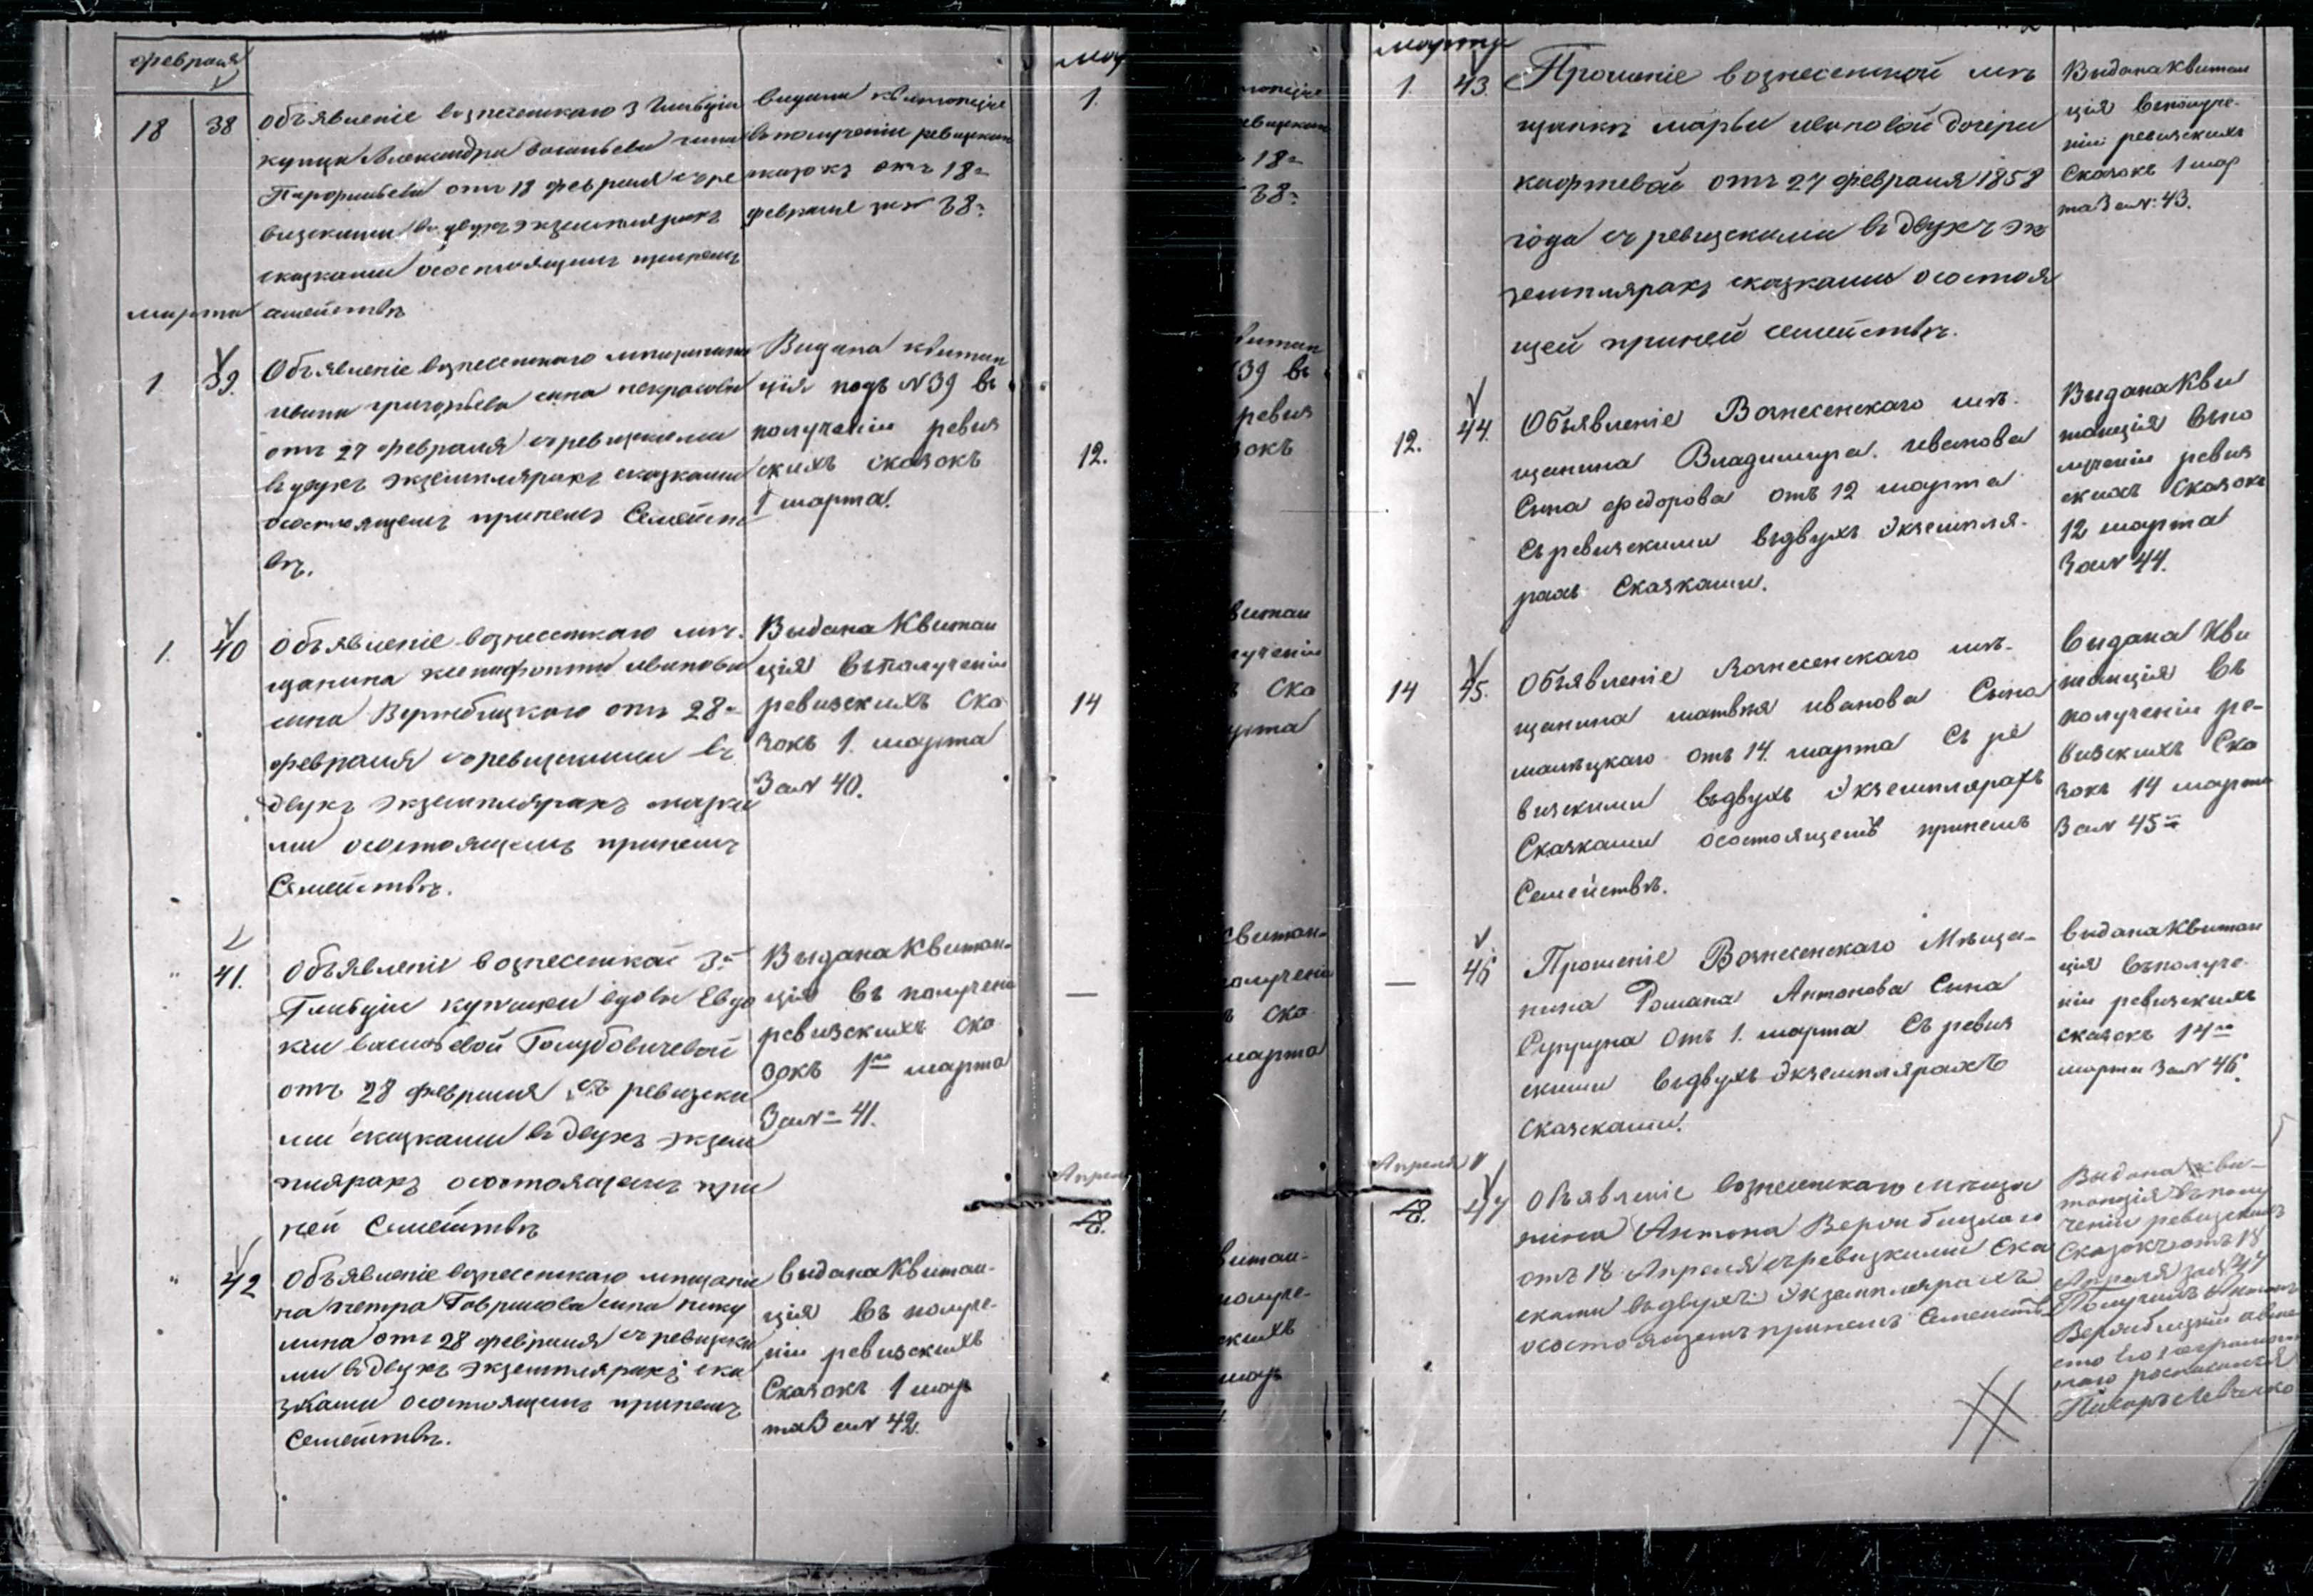 февраля
18
38
Объявленіе вознесенскаго 3 Гильдіи
купца Александра Васильева сына
отъ 18 февраля съ ре
визскими въ двухъ экземплярахъ
сказками осостоящемъ принемъ
семействѣ
выдана квитанція
въ полученіи ревизскихъ
сказокъ отъ 18го
февраля за № 38м
марта
1
39.
Объявленіе вознесенскаго мещанина
ивана григорьева сына некрасова
отъ 27 февраля съ ревизскими
въ двухъ экземплярахъ сказками
осостоящемъ принемъ Семейст
вѣ.
Выдана квитан
ція подъ № 39 въ
полученіи ревиз
скихъ сказокъ
1 марта.
1.
40
Объявленіе вознесенскаго мѣ.
щанина ксенофонта иванова
сына Вержбицкаго отъ 28го
февраля съ ревизскими въ
двухъ экземплярахъ сказка
ми осостоящемъ принемъ
Семействѣ.
Выдана Квитан
ція въ полученіи
ревизскихъ Ска
зокъ 1. марта
За № 40.
"
41.
Объявленіе вознесенской 3й
Гильдіи купчихи вдовы Евдо
кіи васильевой Голубовичевой
отъ 28 февраля съ ревизски
ми сказками въ двухъ экзем
плярахъ осостоящемъ при
ней Семействѣ
Выдана Квитан-
ція въ полученіи
ревизскихъ Ска
зокъ 1го марта
За № = 41.
"
42
Объявленіе вознесенскаго мещани
на петра Гаврилова сына
отъ 28 февраля съ ревизски
ми въ двухъ экземплярахъ ска
зками осостоящемъ принемъ
Семействѣ.
выдана Квитан-
ція въ получе-
ніи ревизскихъ
Сказокъ 1 мар
та За № 42.
1.
12.
14
—
Апрел
18.
марта
1
43.
Прошеніе вознесенской мѣ
щанки марьи ивановой дочери
отъ 27 февраля 1858
года съ ревизскими въ двухъ эк
земплярахъ сказками осостоя
щей приней семействѣ.
Выдана Квитан
ція въ получе-
ніи ревизскихъ
Сказокъ 1 мар
та За № 43.
12.
44.
Объявленіе Вознесенскаго мѣ.
щанина Владимира иванова
Сына федорова отъ 12 марта
Съ ревизскими въ двухъ Экземпля-
рахъ Сказками.
Выдана Кви
танція въ по
лученіи ревиз
скихъ Сказокъ
12 марта
За № 44.
14
45.
Объявленіе Вознесенскаго мѣ-
щанина матвѣя иванова Сына
отъ 14. марта Съ ре
визскими въ двухъ Экземплярахъ
Сказками осостоящемъ принемъ
Семействѣ.
выдана Кви
танція въ
полученіи ре-
визскихъ Ска
зокъ 14 марта
За № 45
—
46
Прошеніе Вознесенскаго Мѣща-
нина Романа Антонова Сына
Супруна отъ 1. марта Съ ревиз
скими въ двухъ Экземплярахъ
Сказками.
выдана Квитан
ція въ получе-
ніи ревизскихъ
сказокъ 14го
марта За № 46.
Апреля
18.
47
Объявленіе вознесенскаго мѣща
нина Антона Вержбицкаго
отъ 18 Апреля съ ревизскими Ска
сками въ двухъ Экземплярахъ
осостоящемъ принемъ Семейств
Выдана кви-
танція въ полу
ченіи ревизскихъ
Сказокъ отъ 18
Апреля за № 47
Получилъ Антонъ
Вержбицкій а вме
сто его неграмот
наго росписался